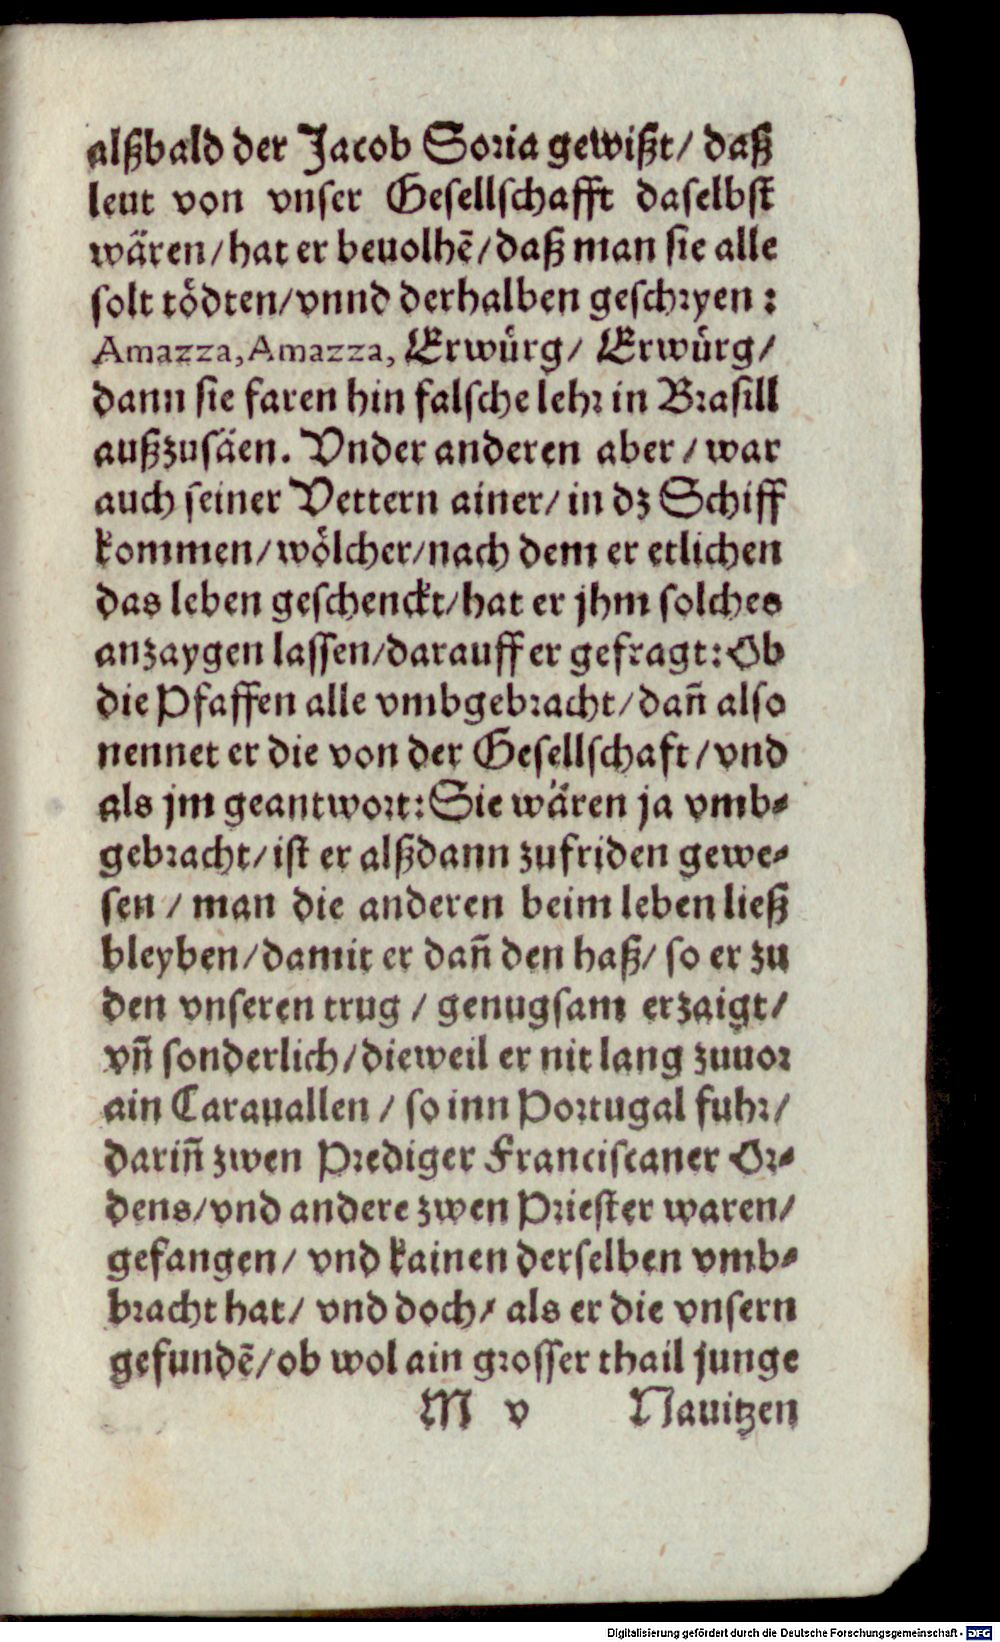 alßbald der Jacob Soria gewißt/ daß
leut von vnser Gesellschafft daselbst
wären/hat er beuolhē/daß man sie alle
solt tödten/vnnd derhalben geschryen:
Amazza,Amazza, Erwůrg/ Erwůrg/
dann sie faren hin falsche lehr in Brasill
außzusäen. Vnder anderen aber/ war
auch seiner Vettern ainer/ in dz Schiff
kommen/wölcher/nach dem er etlichen
das leben geschenckt/hat er jhm solches
anzaygen lassen/darauff er gefragt: Ob
die Pfaffen alle vmbgebracht/dañ also
nennet er die von der Gesellschaft/vnd
als jm geantwort: Sie wären ja vmb-
gebracht/ist er alßdann zufriden gewe-
sen/ man die anderen beim leben ließ
bleyben/damit er dañ den haß/ so er zu
den vnseren trug/ genugsam erzaigt/
vñ sonderlich/dieweil er nit lang zuuor
ain Carauallen/ so inn Portugal fuhr/
dariñ zwen Prediger Franciscaner Or-
dens/vnd andere zwen Priester waren/
gefangen/ vnd kainen derselben vmb-
bracht hat/ vnd doch/ als er die vnsern
gefundē/ob wol ain grosser thail junge
M v Nauitzen
Digitalisierung gefördert durch die Deutsche Forschungsgemeinschaft - DFG